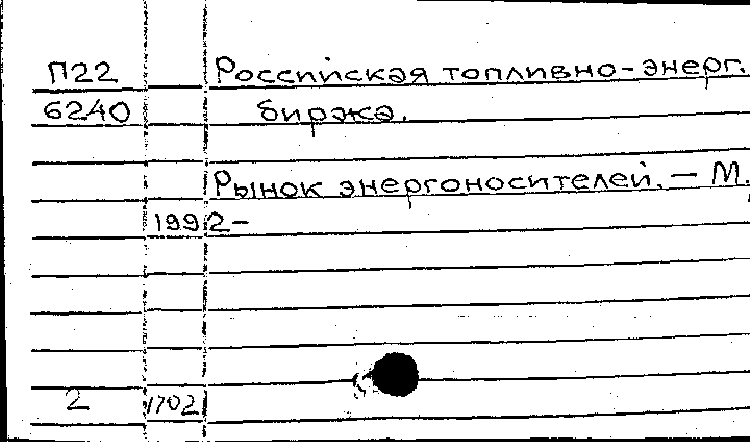 П22 Российская топливно-энерг.
6240 биржа.
Рынок энергоносителей. — М.,
1992-
2 1702